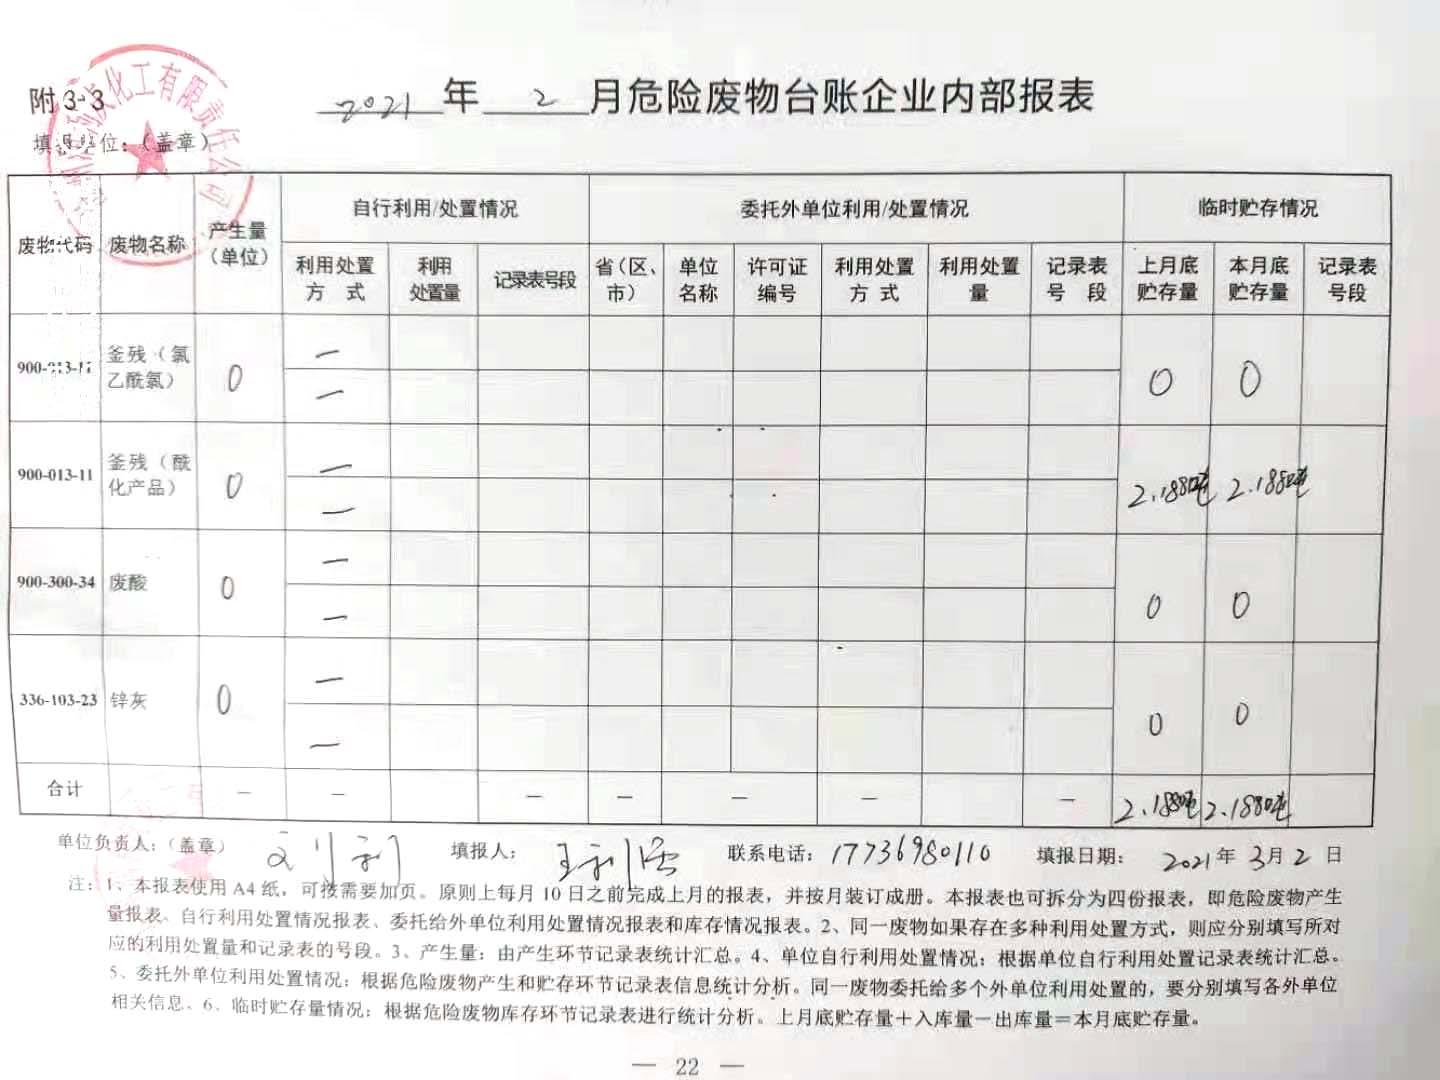 附 3-3
2021 年 2 月危险废物台账企业内部报表
化工有限责任公司
填报单位：（盖章）
废物代码 废物名称 产生量（单位） 自行利用/处置情况 委托外单位利用/处置情况 临时贮存情况
利用处置方 式 利用处置量 记录表号段 省（区、市） 单位名称 许可证编号 利用处置方 式 利用处置量 记录表号 段 上月底贮存量 本月底贮存量 记录表号段
900-013-11 釜残（氯乙酰氯） 0 — 0 0
—
900-013-11 釜残（酰化产品） 0 — 2.1880吨 2.1880吨
—
900-300-34 废酸 0 — 0 0
—
336-103-23 锌灰 0 — 0 0
—
合计 — — — — — — — 2.1880吨 2.1880吨
单位负责人：（盖章） 填报人： 联系电话：17736980110 填报日期： 2021年 3月 2 日
注：1、本报表使用 A4 纸，可按需要加页。原则上每月 10 日之前完成上月的报表，并按月装订成册。本报表也可拆分为四份报表，即危险废物产生
量报表、自行利用处置情况报表、委托给外单位利用处置情况报表和库存情况报表。2、同一废物如果存在多种利用处置方式，则应分别填写所对
应的利用处置量和记录表的号段。3、产生量：由产生环节记录表统计汇总。4、单位自行利用处置情况：根据单位自行利用处置记录表统计汇总。
5、委托外单位利用处置情况：根据危险废物产生和贮存环节记录表信息统计分析。同一废物委托给多个外单位利用处置的，要分别填写各外单位
相关信息、6、临时贮存量情况：根据危险废物库存环节记录表进行统计分析。上月底贮存量＋入库量－出库量＝本月底贮存量。
— 22 —